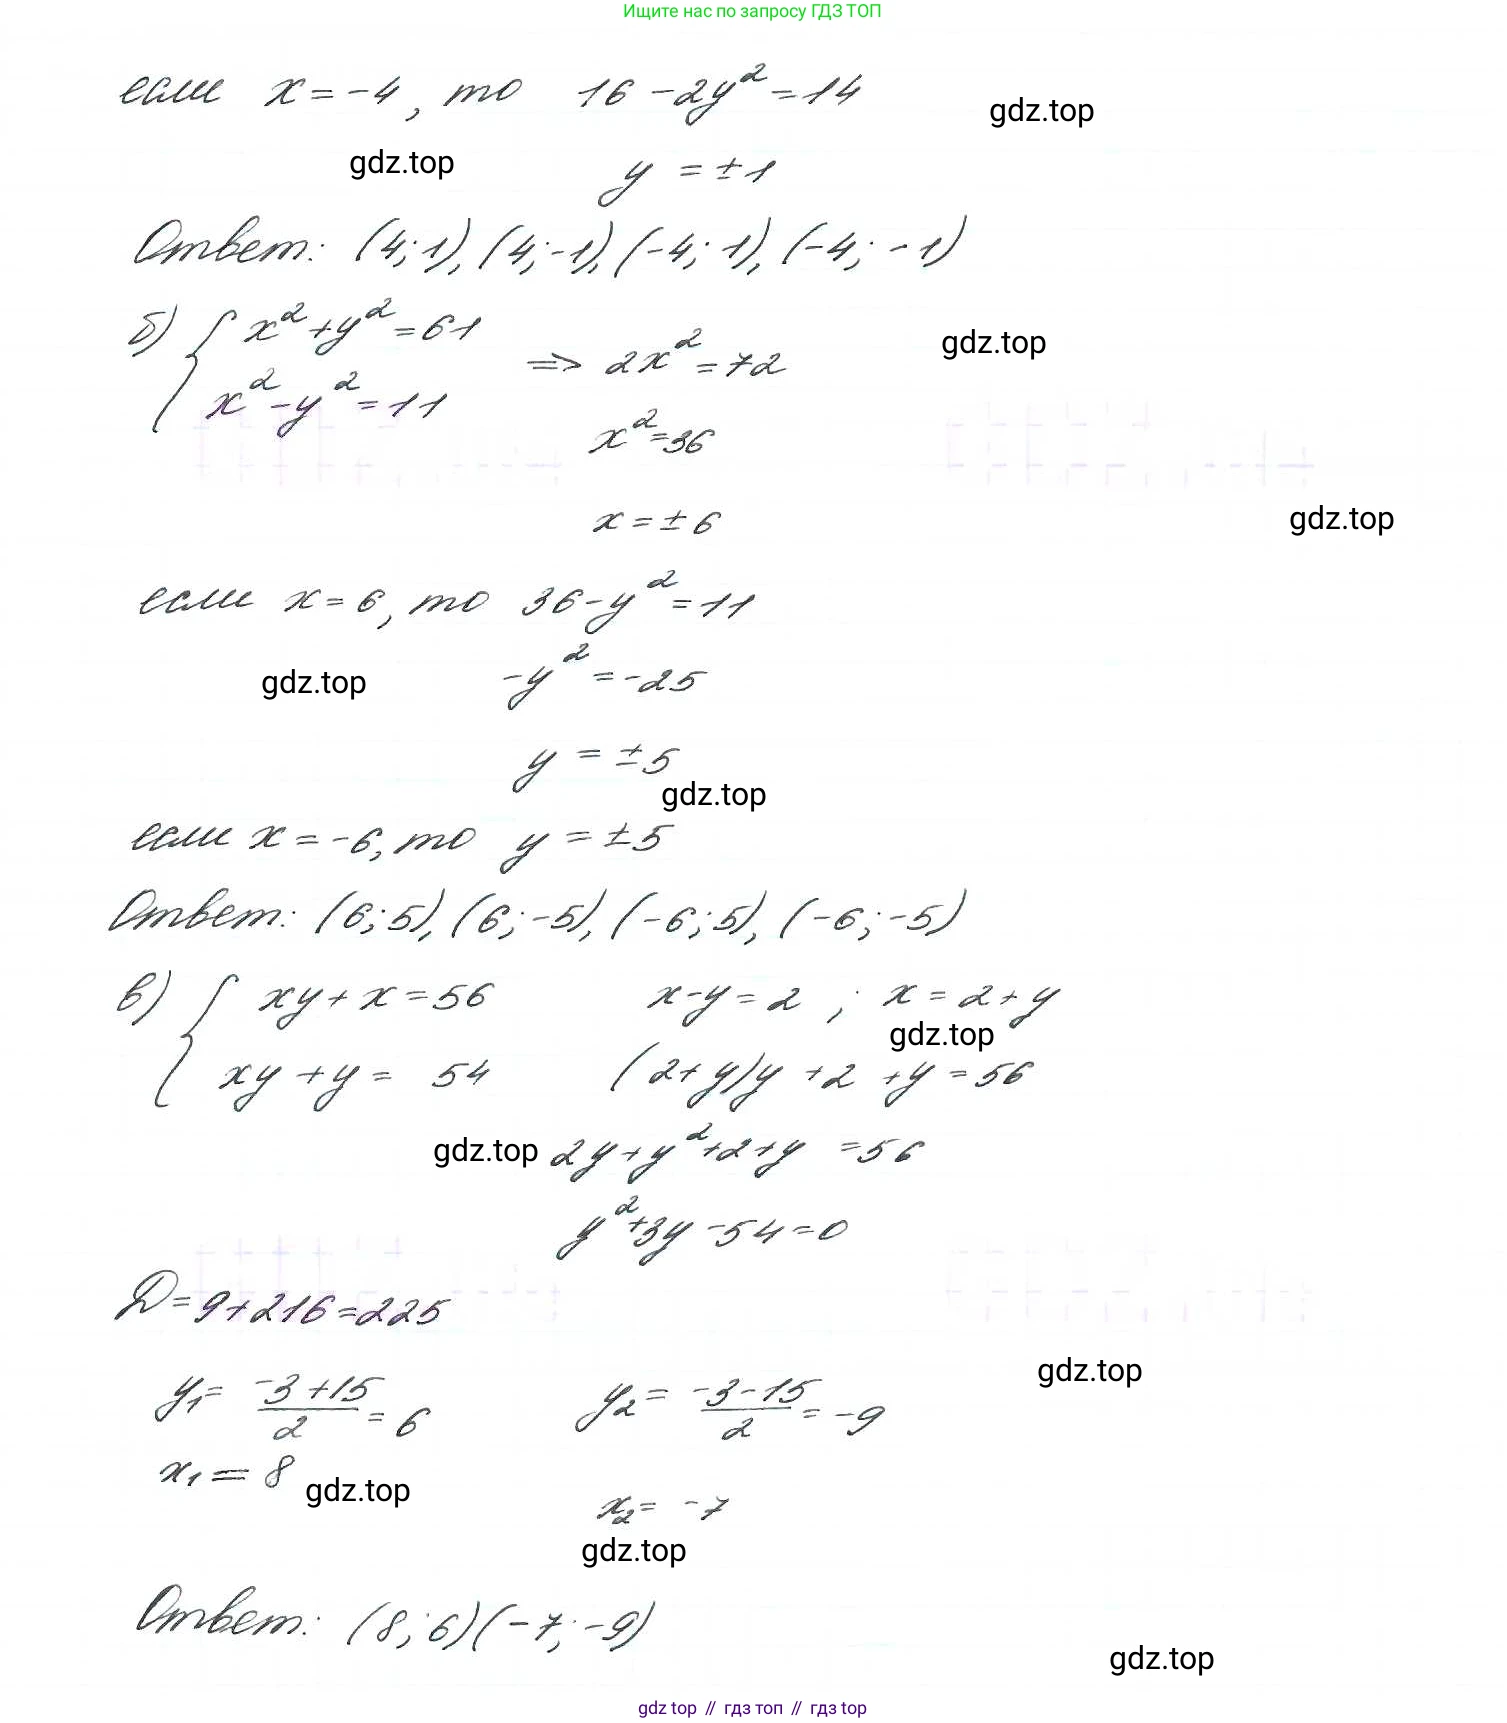 Ищите нас по запросу ГДЗ ТОП
если x = -4, то 16 - 2y² = 14
gdz.top
gdz.top
y = ±1
Ответ: (4; 1), (4; -1), (-4; 1), (-4; -1)
б) { x² + y² = 61
x² - y² = 11
=> 2x² = 72
gdz.top
x² = 36
x = ±6
gdz.top
если x = 6, то 36 - y² = 11
gdz.top
-y² = -25
y = ±5
gdz.top
если x = -6, то y = ±5
Ответ: (6; 5), (6; -5), (-6; 5), (-6; -5)
в) { xy + x = 56 x - y = 2 ; x = 2 + y
gdz.top
xy + y = 54 (2 + y)y + 2 + y = 56
gdz.top 2y + y² + 2 + y = 56
y² + 3y - 54 = 0
D = 9 + 216 = 225
gdz.top
y₁ = (-3 + 15)/2 = 6 y₂ = (-3 - 15)/2 = -9
x₁ = 8
gdz.top
x₂ = -7
gdz.top
Ответ: (8; 6) (-7; -9)
gdz.top
gdz top // гдз топ // гдз top